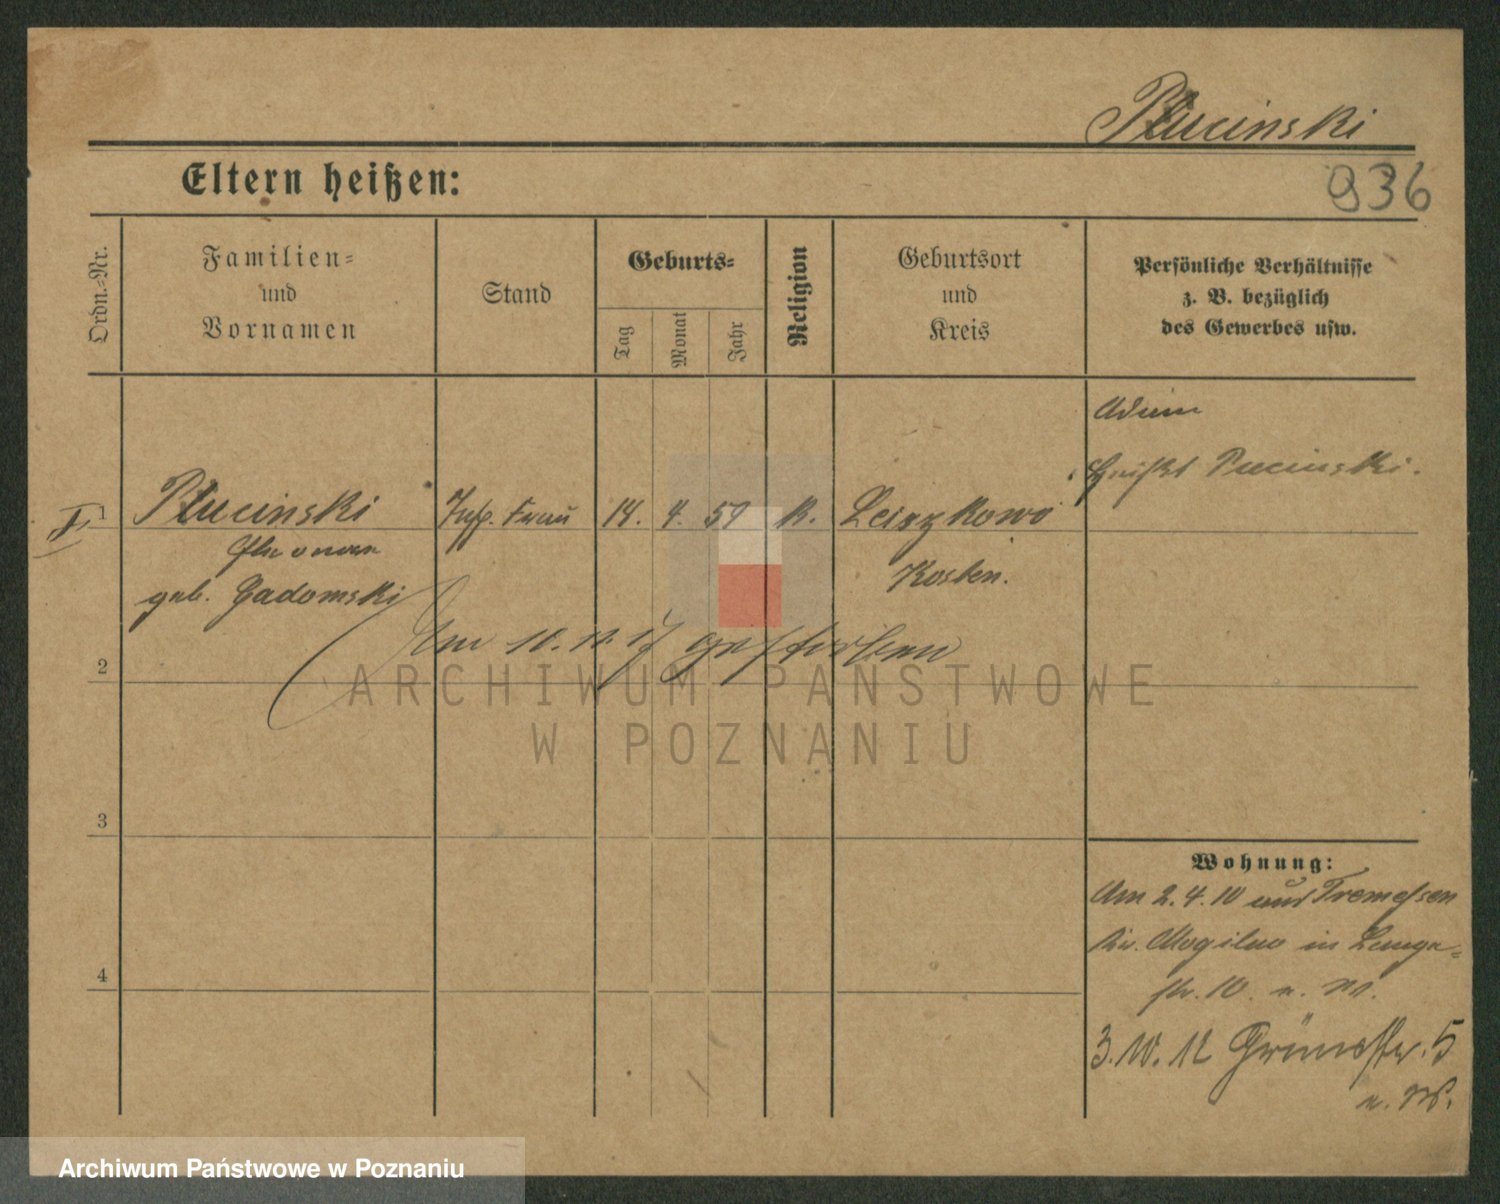 Plucinski
936
Eltern heißen:
Ordn.-Nr.
Familien-
und
Vornamen
Stand
Geburts-
Tag
Monat
Jahr
Religion
Geburtsort
und
Kreis
Persönliche Verhältnisse
z. B. bezüglich
des Gewerbes usw.
I
1
Plucinski
geb. Gadomski
Frau
14.
4.
59
K.
Leiszkowo
Kosten.
Plucinski.
2
Am 10. 12. 17 gestorben
3
4
Wohnung:
Am 2.4.10 aus Tremessen
Kr. Mogilno in Lange-
str. 10. n. W.
3.10.12 Grünestr. 5
n. W.
ARCHIWUM PAŃSTWOWE
W POZNANIU
Archiwum Państwowe w Poznaniu